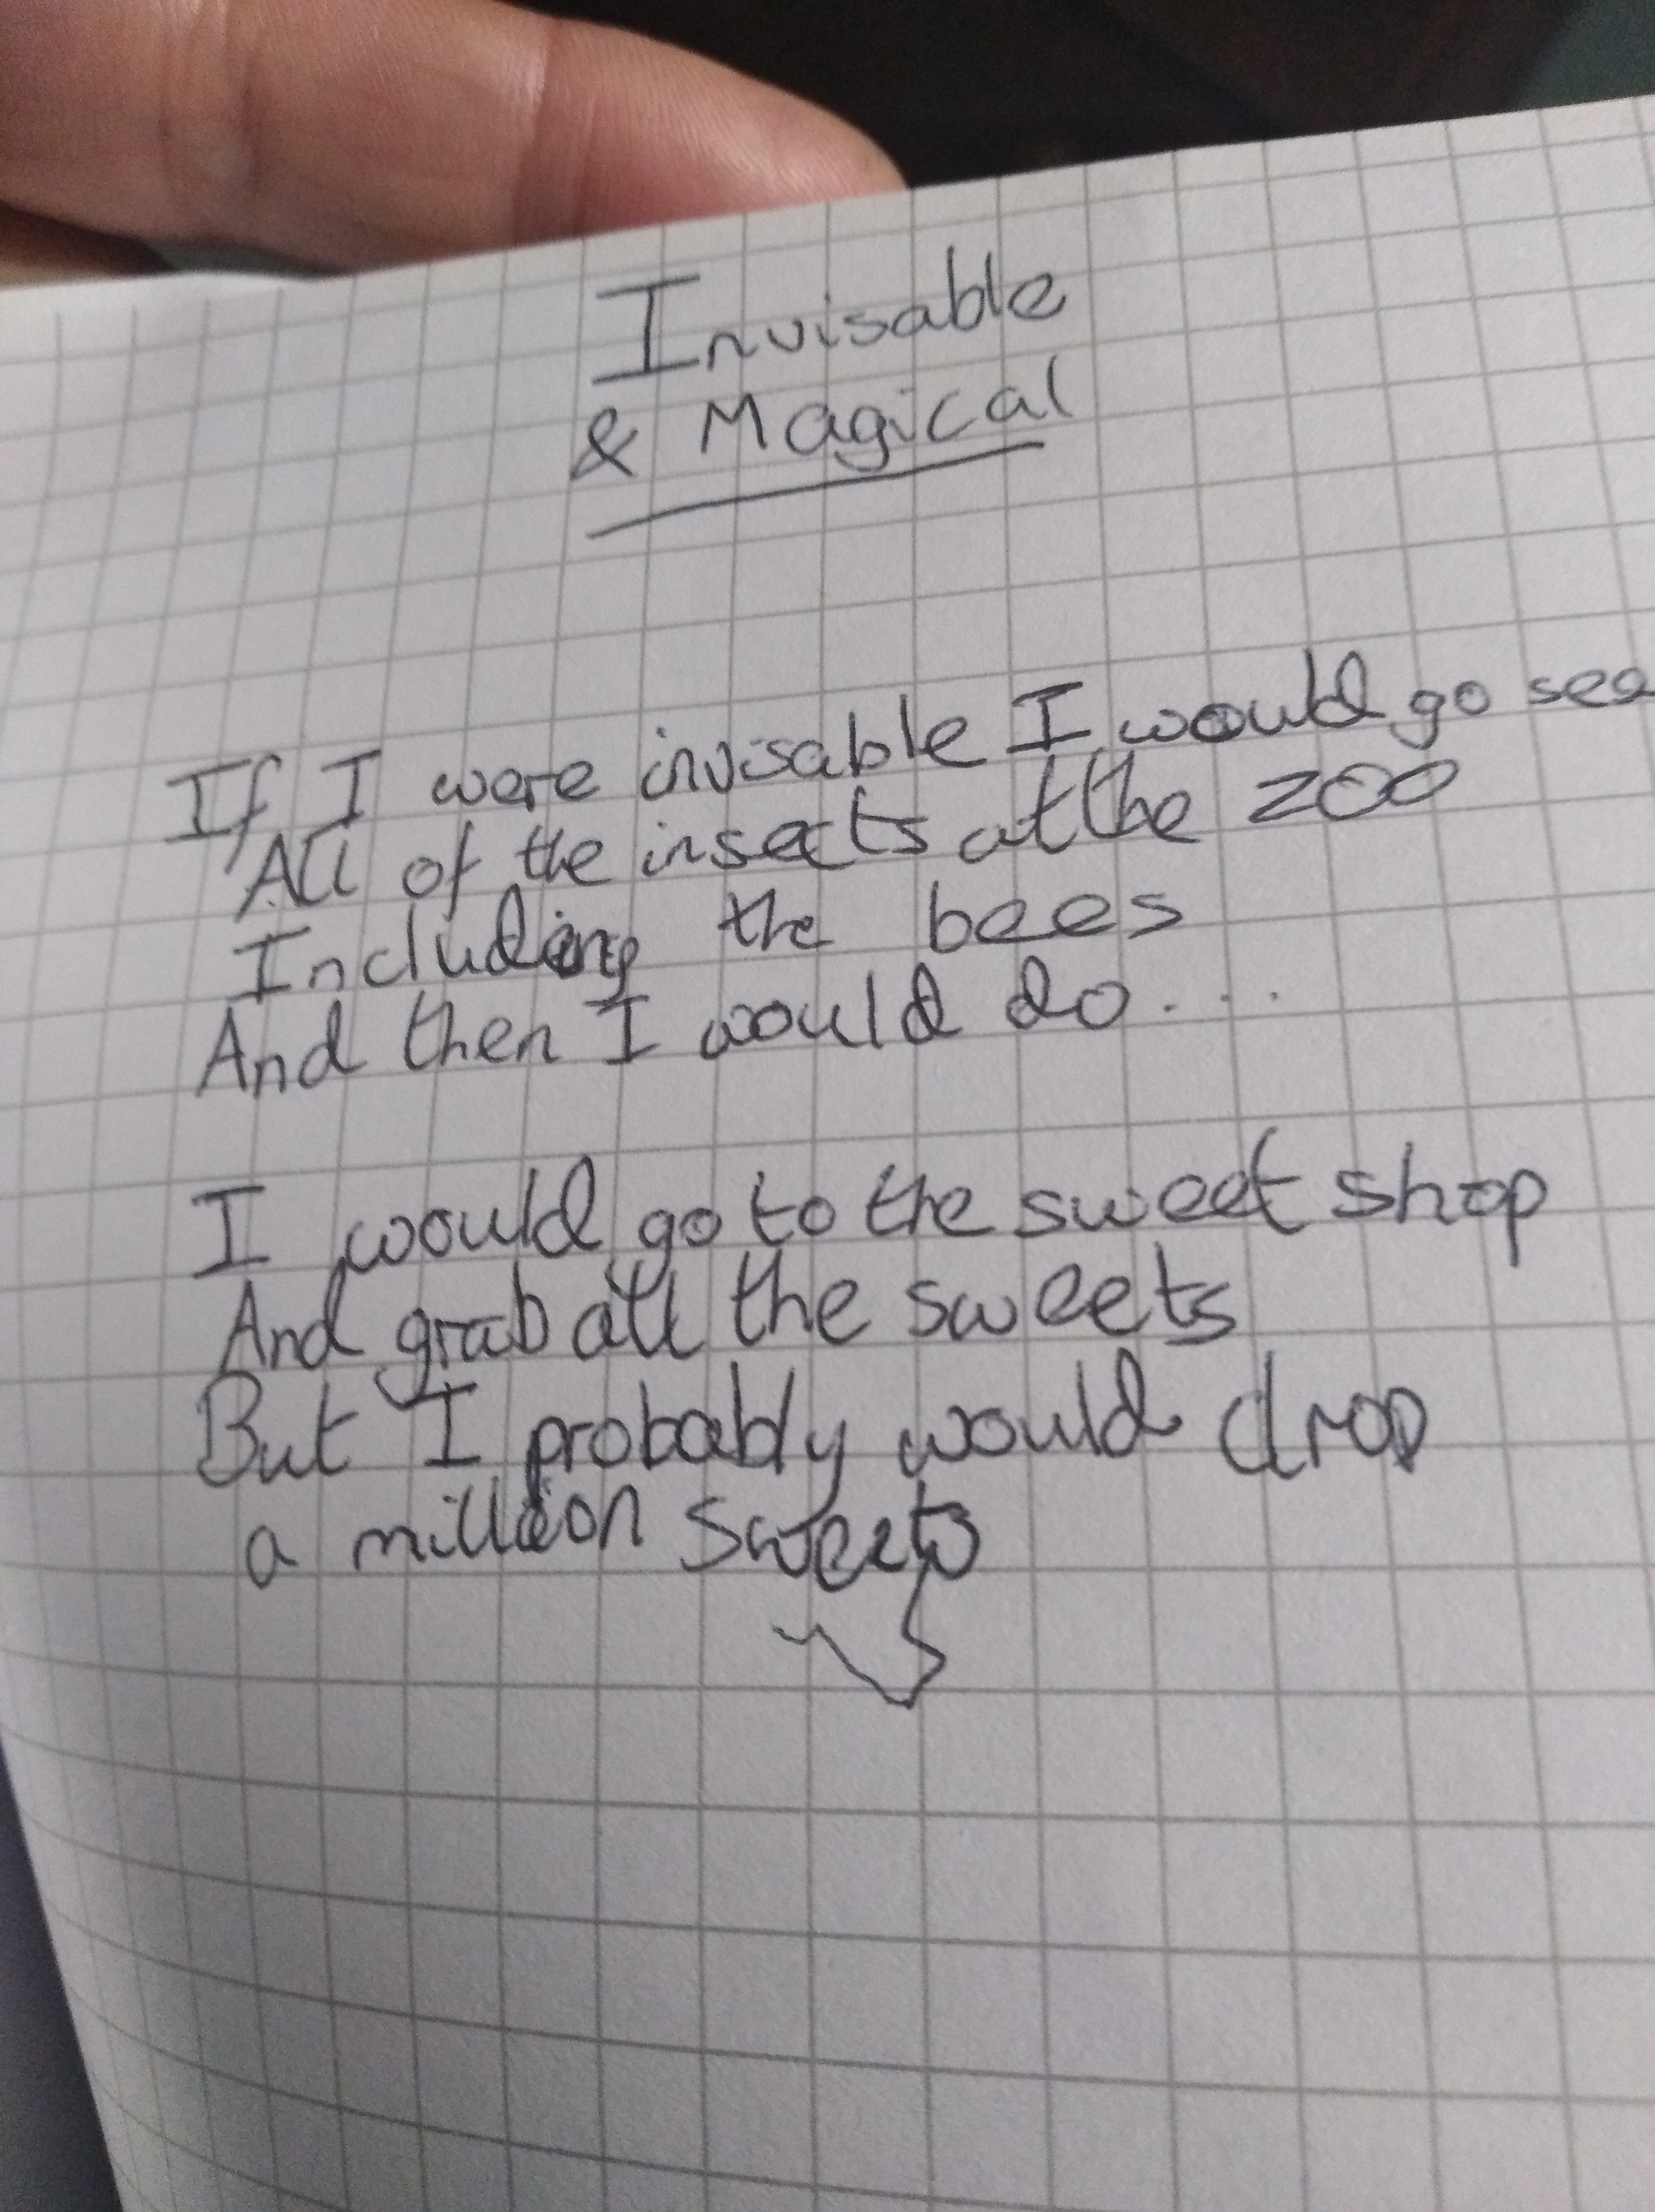 Invisable
& Magical
If I were invisable I would go see
All of the insects at the zoo
Including the bees
And then I would do...
I would go to the sweet shop
And grab all the sweets
But I probably would drop
a million sweets